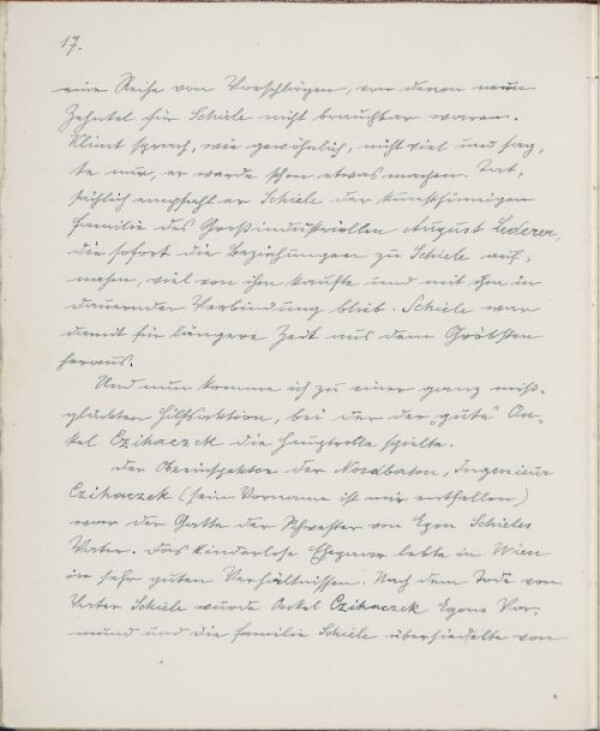 17.
eine Reihe von Vorschlägen, von denen neun
Zehntel für Schiele nicht brauchbar waren.
Klimt sprach, wie gewöhnlich, nicht viel und sag-
te nur, er werde schon etwas machen. Tat-
sächlich empfahl er Schiele der kunstsinnigen
Familie des Großindustriellen August Lederer,
die sofort die Beziehungen zu Schiele auf-
nahm, viel von ihm kaufte und mit ihm in
dauernder Verbindung blieb. Schiele war
damit für längere Zeit aus dem Gröbsten
heraus.
Und nun komme ich zu einer ganz miß-
glückten Hilfsaktion, bei der der „gute" On-
kel Czihaczek die Hauptrolle spielte.
Der Oberinspektor der Nordbahn, Ingenieur
Czihaczek (sein Vorname ist mir entfallen)
war der Gatte der Schwester von Egon Schieles
Vater. Das kinderlose Ehepaar lebte in Wien
in sehr guten Verhältnissen. Nach dem Tode von
Vater Schiele wurde Onkel Czihaczek Egons Vor-
mund und die Familie Schiele übersiedelte von